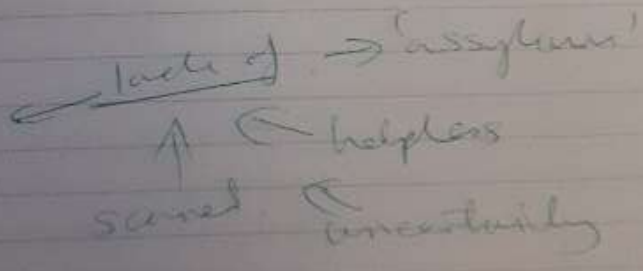 lack of → 'assylum'
helpless
scared uncertainity